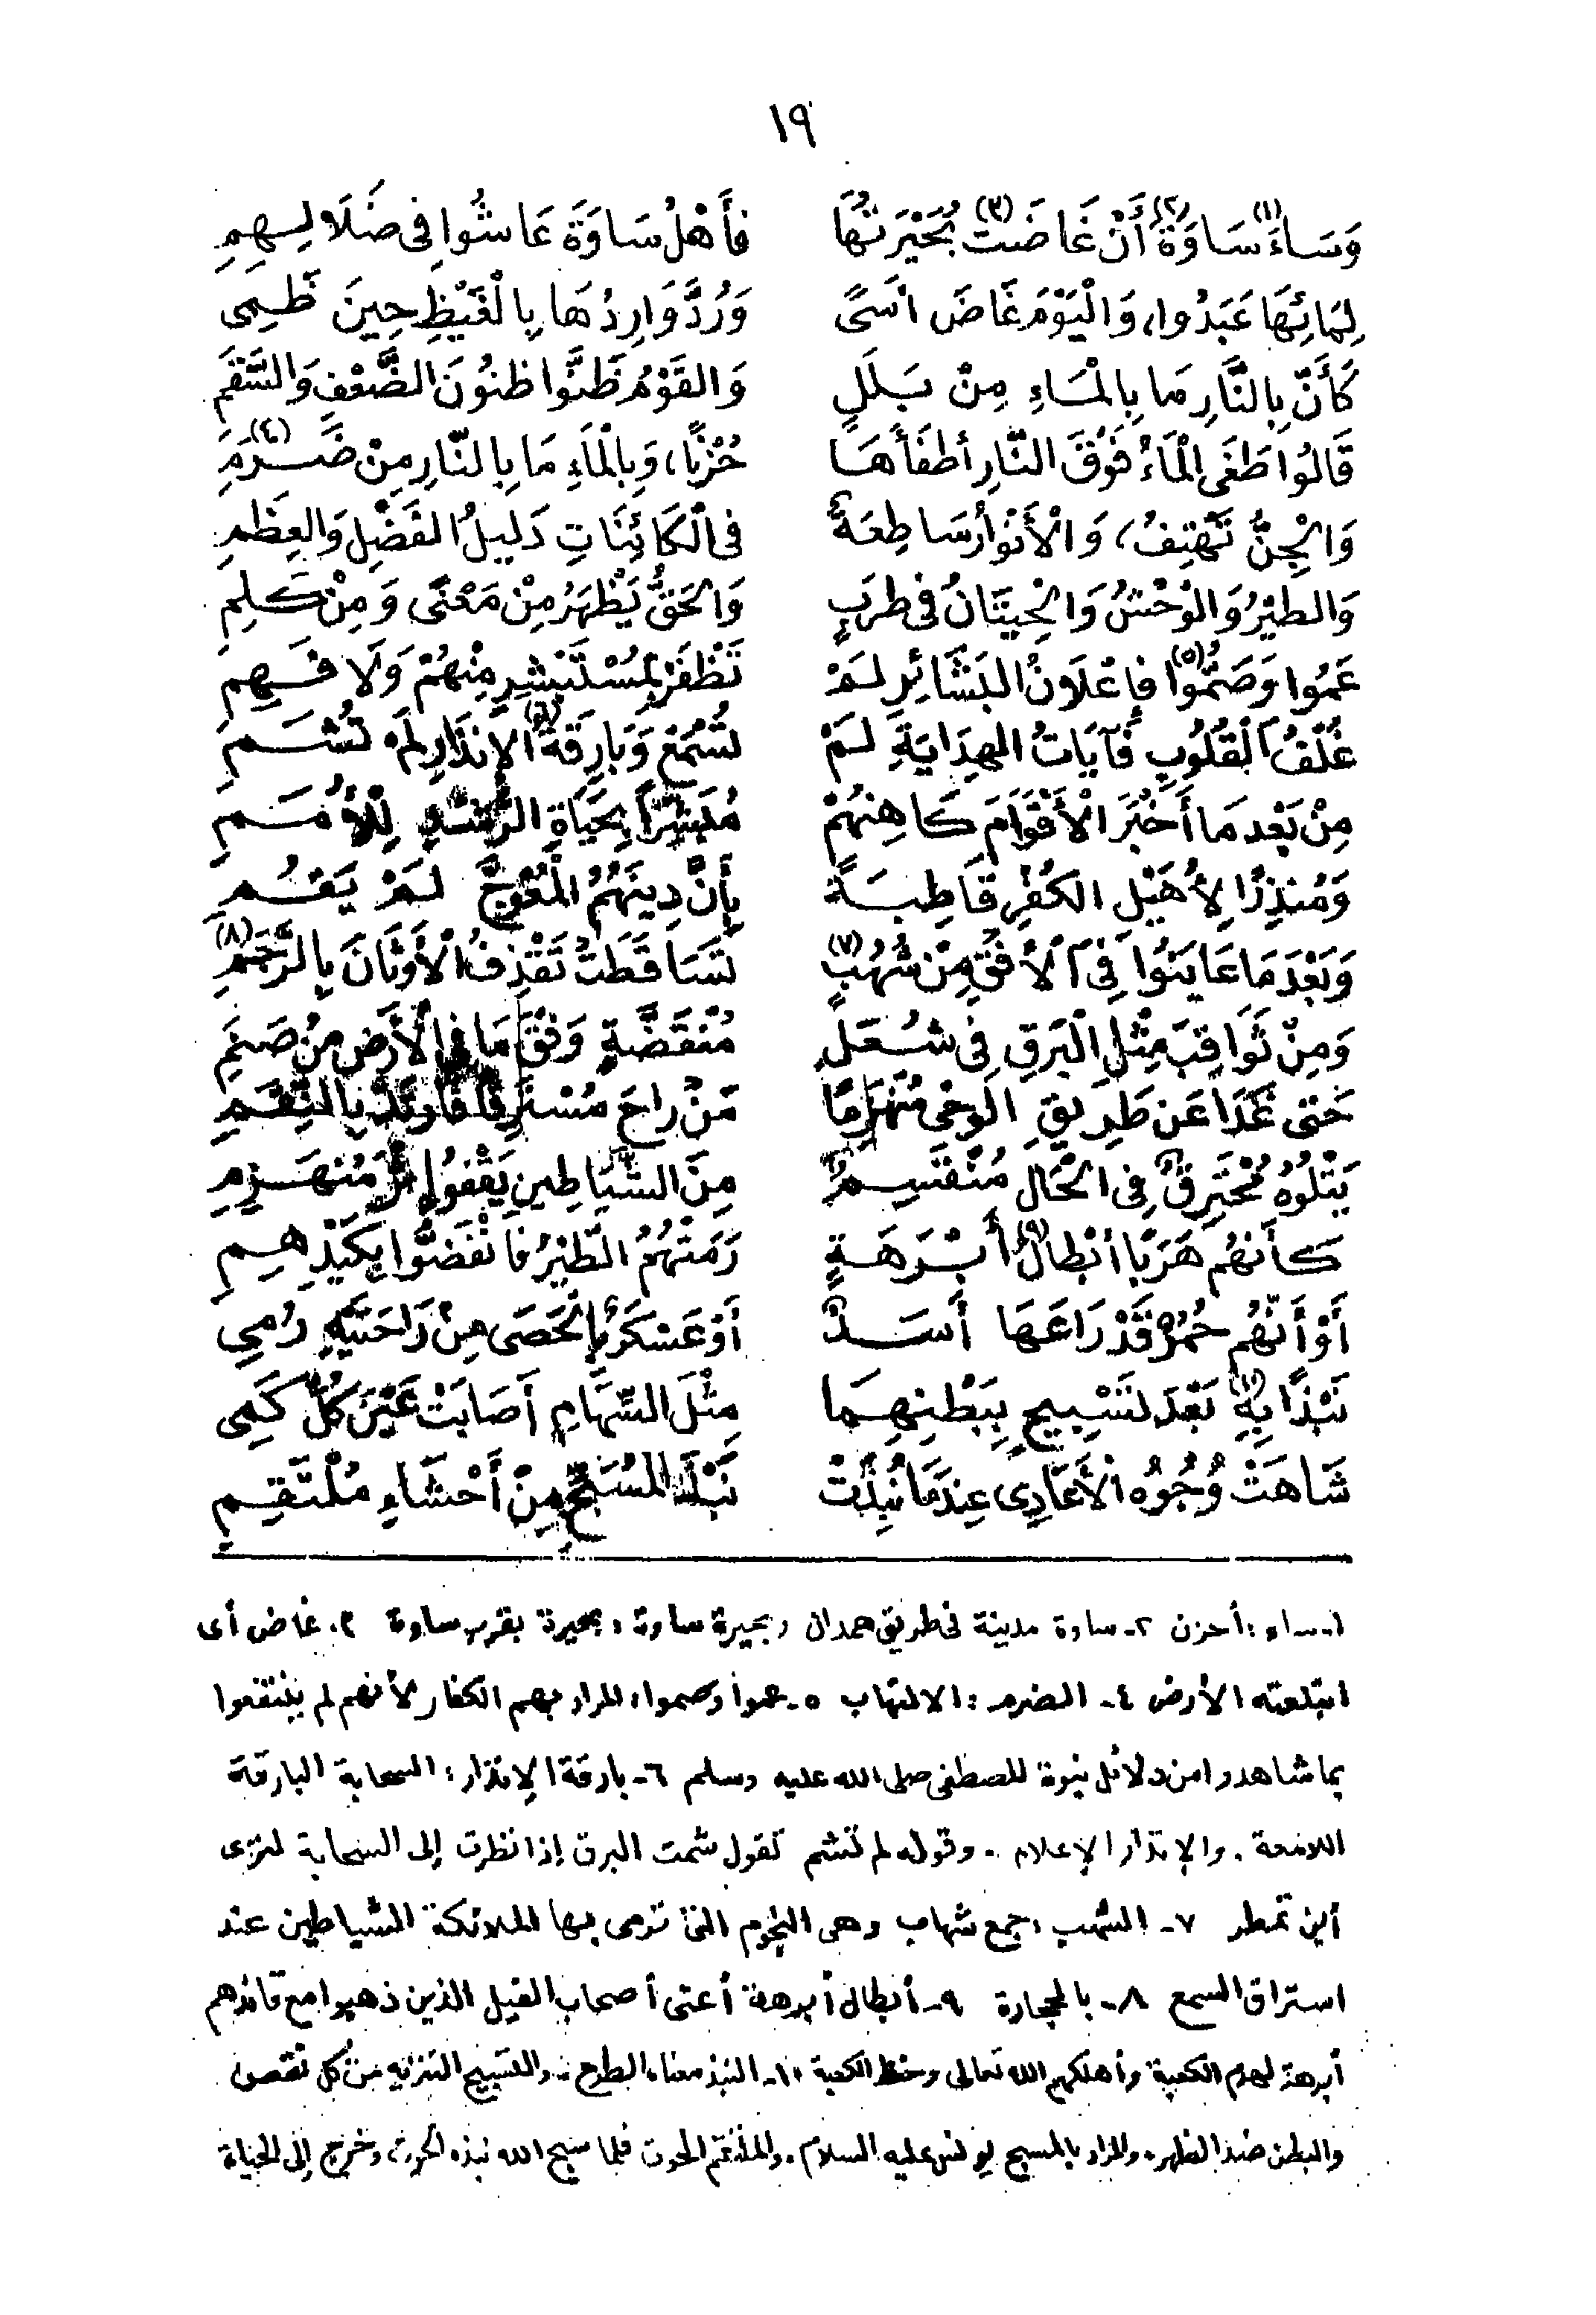 ١٩
وَسَاءَ (١) سَاوَةَ (٢) أَنْ غَاضَتْ (٣) بُحَيْرَتُهَا فَأَهْلُ سَاوَةَ عَاشُوا فِى ضَلَالِهِمِ
لِمَائِهَا عَبَدُوا، وَالْيَوْمَ غَاضَ أَسًى وَرُدَّ وَارِدُهَا بِالْغَيْظِ حِينَ ظَمِى
كَأَنَّ بِالنَّارِ مَا بِالْمَاءِ مِنْ بَلَلٍ وَالقَوْمُ ظَنُّوا ظُنُونَ الضَّعْفِ وَالسَّقَمِ
قَالُوا طَغَى الْمَاءُ فَوْقَ النَّارِ أَطفَأَهَا حُزْنًا، وَبِالْمَاءِ مَا بِالنَّارِ مِنْ ضَرَمِ (٤)
وَالْجِنُّ تَهْتِفُ، وَالْأَنْوَارُ سَاطِعَةٌ فِى الْكَائِنَاتِ دَلِيلُ الفَضْلِ وَالعِظَمِ
وَالطَيْرُ وَالوَحْشُ وَالْحِيتَانُ فِى طَرَبٍ وَالحَقُّ يَظْهَرُ مِنْ مَعْنًى وَمِنْ كَلِمِ
عَمُوا وَصَمُّوا (٥) فَإِعْلَانُ البَشَائِرِ لَمْ تَظْفَرْ بِمُسْتَبْشِرٍ مِنْهُمْ وَلَا فَهِمِ
غُلْفُ القُلُوبِ فَآيَاتُ الهِدَايَةِ لَمْ تُسْمَعْ وَبَارِقَةُ (٦) الإِنذَارِ لَمْ تُشَمِ
مِنْ بَعْدِ مَا أَخْبَرَ الْأَقْوَامَ كَاهِنُهُمْ مُبَشِّرًا بِحَيَاةِ الرُّشْدِ لِلْأُمَمِ
وَمُنذِرًا لِأُهَيْلِ الكُفْرِ قَاطِبَةً بِأَنَّ دِينَهُمُ الْمُعْوَجَّ لَمْ يَقُمِ
وَبَعْدَ مَا عَايَنُوا فِى الْأُفْقِ مِنْ شُهُبٍ (٧) تَسَاقَطَتْ تَقْذِفُ الْأَوثَانَ بِالرَّجَمِ (٨)
وَمِنْ ثَوَاقِبَ مِثْلِ الْبَرَقِ فِى شُعَلٍ مُنْقَضَّةٍ وَفْقَ مَا فِى الْأَرْضِ مِنْ صَنَمِ
حَتَى غَدَا عَن طَرِيقِ الوَحْىِ مُنْهَزِمًا مَنْ رَاحَ مُسْتَرِقًا فَارْتَدَّ بِالنِّقَمِ
يَتْلُوهُ مُحْتَرِقٌ فِى الحَالِ مُنْقَسِمٌ مِنَ الشَّيَاطِينِ يَقْفُو إِثْرَ مُنْهَزِمِ
كَأَنهُم هَرَبًا أَبْطَالُ (٩) أَبْرَهَةٍ رَمَتْهُمُ الطَيْرُ فَانْفَضُّوا بِكَيْدِهِمِ
أَوْ أَنَّهُم حُمُرٌ قَدْ رَاعَهَا أَسَدٌ أَوْ عَسْكَرٌ بِالْحَصَى مِنْ رَاحَتَيْهِ رُمِى
نَبْذًا (١٠) بِهِ بَعْدَ تَسْبِيحٍ بِبَطْنِهِمَا مِثْلَ السِّهَامِ أَصَابَتْ عَيْنَ كُلِّ كَمِى
شَاهَتْ وُجُوهُ الْأَعَادِى عِنْدَمَا نُبِذَتْ نَبْذَ المُسَبِّحِ مِنْ أَحْشَاءِ مُلْتَقِمِ
١- ساء: أحزن ٢- ساوة مدينة فى طريق همدان وبحيرة ساوة: بحيرة بقرب ساوة ٣. غاض أى
ابتلعته الأرض ٤- الضرم: الالتهاب ٥- عموا وصموا: المراد بهم الكفار لأنهم لم ينتفعوا
بما شاهدوا من دلائل نبوة المصطفى صلى الله عليه وسلم ٦- بارقة الإنذار: السحابة البارقة
اللامعة. والإنذار الإعلام. وقوله لم تشم تقول شمت البرق إذا نظرت إلى السحابة لترى
أين تمطر ٧- الشهب: جمع شهاب وهى النجوم التى ترمى بها الملائكة الشياطين عند
استراق السمع ٨- بالحجارة ٩- أبطال أبرهة أعنى أصحاب الفيل الذين ذهبوا مع قائدهم
أبرهة لهدم الكعبة وأهلكهم الله تعالى وحفظ الكعبة ١٠- النبذ معناه الطرح. والتسبيح التنزيه من كل نقص
والبطن ضد الظهر. والمراد بالمسبح يونس عليه السلام. والملتقم الحوت فلما سبح الله نبذه الحوت وخرج إلى الحياة